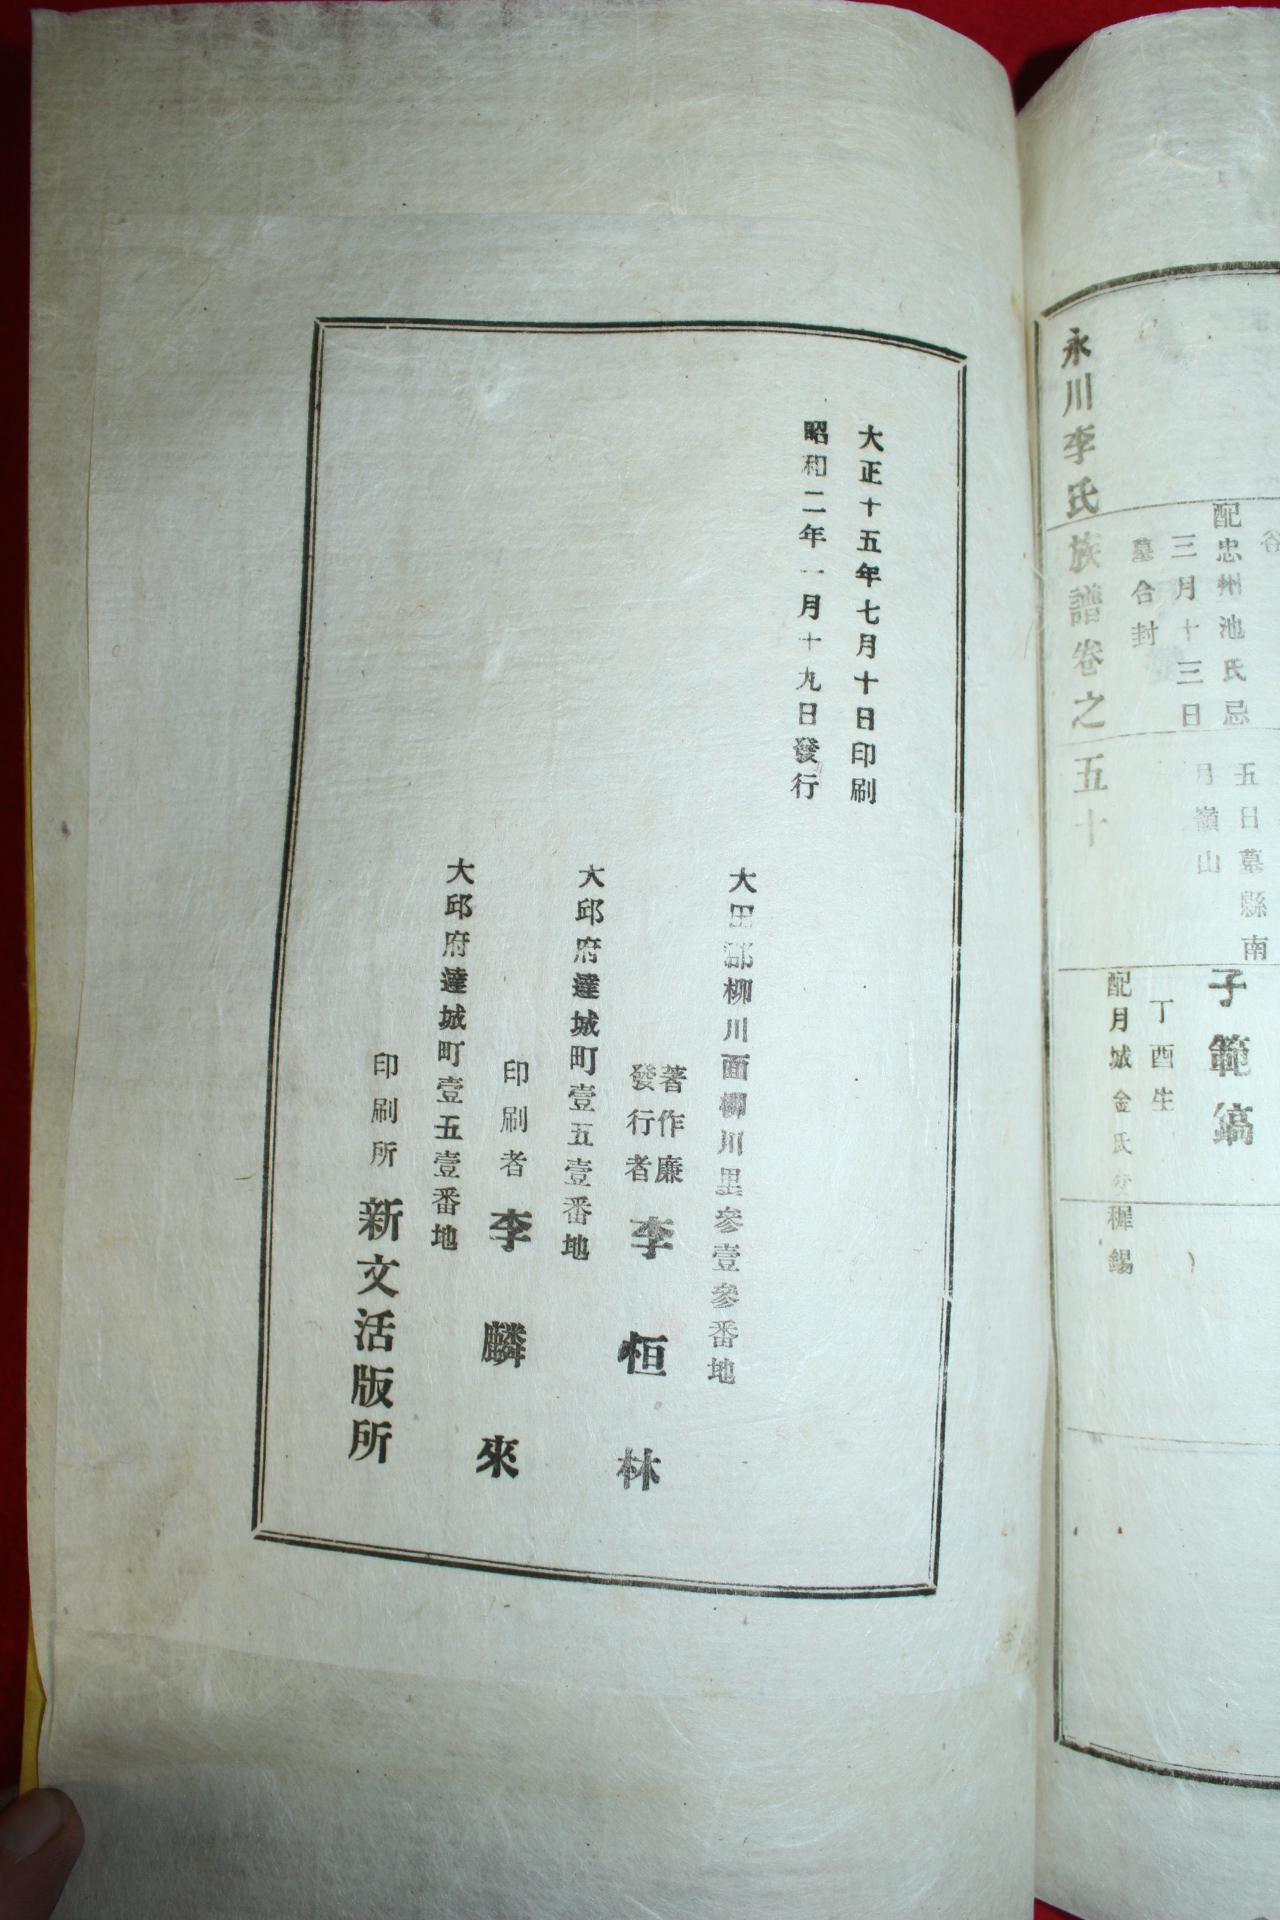 五日墓縣南
月嶺山
子範鎬
配忠州池氏忌
三月十三日
墓合封
丁酉生
配月城金氏父
樨錫
永川李氏族譜卷之五十
大正十五年七月十日印刷
昭和二年一月十九日發行
大田郡柳川面柳川里參壹參番地
著作廉
發行者 李恒林
大邱府達城町壹五壹番地
印刷者 李麟來
大邱府達城町壹五壹番地
印刷所 新文活版所